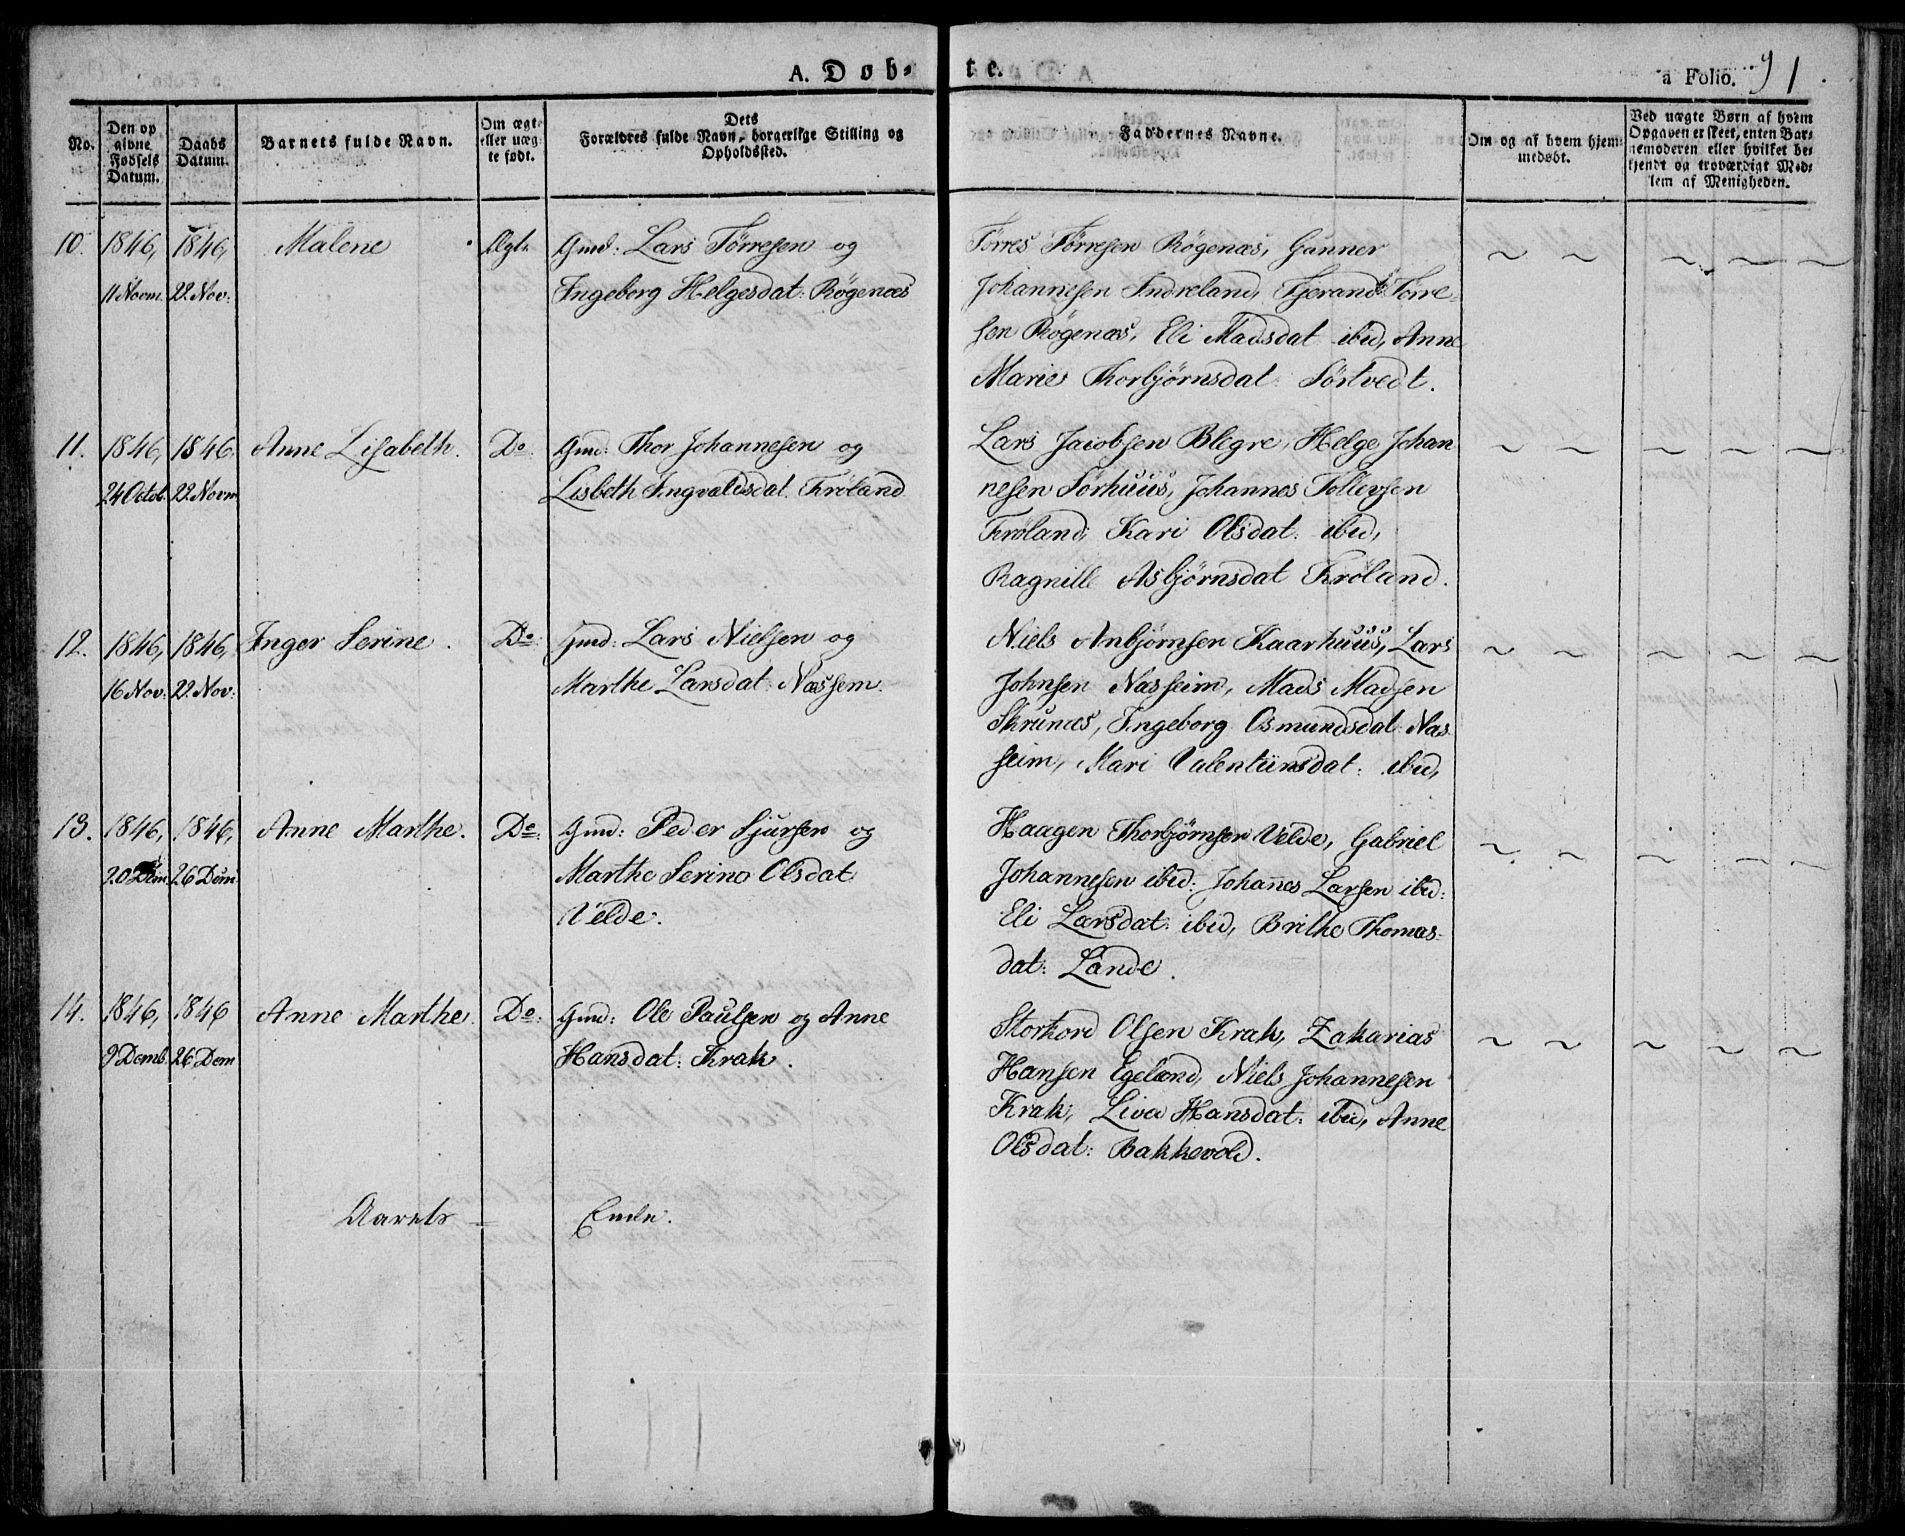 A. Døb-
te.
a Folio. 91
No.
Den op
givne
Fødsels
Datum.
Daabs
Datum.
Barnets fulde Navn.
Om ægte
eller uæg-
te født.
Dets
Forældres fulde Navn, borgerlige Stilling og
Opholdssted.
Faddernes Navne.
Om og af hvem hjem-
medøbt.
Ved uægte Børn af hvem
Opgaven er skeet, enten Bar-
nemoderen eller hvilket be-
kjendt og troværdigt Med-
lem af Menigheden.
10. 1846, 1846, Malene Ægte Gmd: Lars Tørresen og
11 Novm. 22. Nov: Ingeborg Helgesdat: Røgenæs
Tørres Tørresen Røgenæs, Gunner
Johannesen Indreland, Tjerand Tørre-
sen Røgenæs, Eli Madsdat ibid, Anne
Marie Thorbjørnsdat: Sörtvedt.
11. 1846, 1846. Anne Lisabeth. Do Gmd: Thor Johannesen og
24 Octob. 22. Novm Lisbeth Ingvaldsdat. Frøland
Lars Jacobsen Blegre, Helge Johan
nesen Sørhuus, Johannes Tollevsen
Frøland, Kari Olsdat: ibid,
Ragnille Asbjörnsdat Frøland.
12. 1846, 1846, Inger Serine. Do: Gmd: Lars Nielsen og
16 Nov: 22. Nov: Marthe Larsdat: Næssem.
Niels Anbjørnsen Kaarhuus, Lars
Johnsen Næsseim, Mads Madsen
Skrunæs, Ingeborg Osmundsdat: Næs
seim, Mari Valentinsdat: ibid,
13. 1846, 1846, Anne Marthe. Do: Gmd: Peder Sjursen og
20 Dem 26 Dem Marthe Serine Olsdat
Velde.
Haagen Thorbjørnsen Velde, Gabriel
Johannesen ibid: Johañes Larsen ibid:
Eli Larsdat: ibid, Brithe Thomas-
dat: Lande.
14. 1846, 1846 Anne Marthe. Do: Gmd: Ole Paulsen og Anne
9 Demb. 26 Dem Hansdat: Krak.
Storkord Olsen Krak, Zakarias
Hansen Egeland, Niels Johannesen
Krak, Liva Hansdat: ibid, Anne
Olsdat: Bakkevold.
Aarets — Ende.